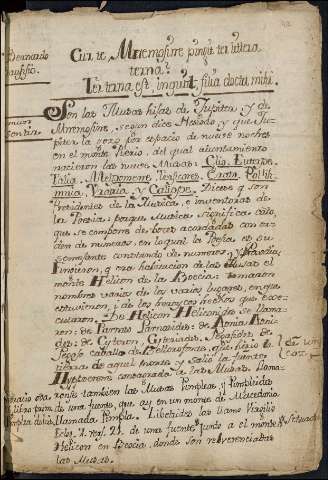 Bernardo
Cur te Mnemosine pinxit ter littera
terna?
Ter terna est, inquit, filia docta mihi.
Son las Musas hijas de Jupiter, y de
Mnemosine, segun dice Hesiodo y que Ju-
piter la gozo por espacio de nueve noches
en el monte Pierio, del qual aiuntamiento
nacieron las nueve Musas: Clio, Euterpe,
Talia, Melpomene, Tersicore, Erato, Polihi-
mnia, Urania, y Caliope. Dicese q son
Presidentes de la Musica, e inventoras de
la Poesia: porque Musica, significa cosa,
que se compone de voces acordadas con or-
den de numeros, en lo qual la Poesia es su
semejante constando de numeros, y
Fingieron, q era habitacion de las Musas el
monte Helicon de la Boecia: tomaron
nombre varios de los varios lugares, en que
estuvieron, y de los
cutaron. De Helicon Heliconides se llama-
ron: de Parnaso Parnasides: de Aonia Aoni-
des: de Citeron, Citerides: Pegasides de
Pegaso caballo de Bellorofonte, que hirio la
tierra de aquel monte, y salio la fuente
Hypocrene consagrada a las Musas. Llama-
ronse tambien las Musas Pimpleas, y Pimpleides
de una fuente, que ay en un monte de Macedonia
llamada Pimpla. Libetrides las llamo Virgilio
Eclog. 7. vers. 21. de una fuente junto a el monte
Helicon en Boecia, donde son reverenciadas
las Musas.